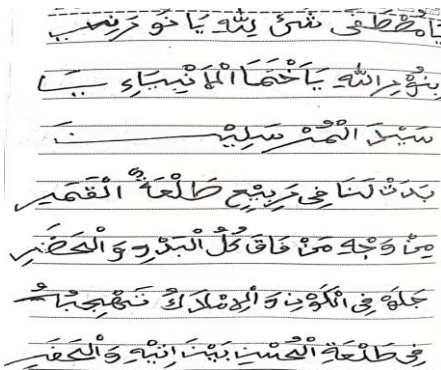 يَامُصْطَفَى شَئْ لِلّٰهِ يَا نُو رَبِيبِ
بِنُوْرِ اللّٰهِ يَاخَتْمَا الْأَنْبِيَاءِ يَا
سَيِّدَ الْمُرْسَلِيْنَ
بَدَتْ لَنَا فِى رَبِيْعٍ طَلْعَةُ الْقَمَرِ
مِنْ وَجْهِ مَنْ فَاقَ كُلَّ الْبَدْرِ وَالْحَضَرِ
جَلَهْ فِى الْكَوْنِ وَالِامْلَاكُ
فِى طَلْعَةِ الْحُسْنِ بَيْنَ وَالْحَفَرِ